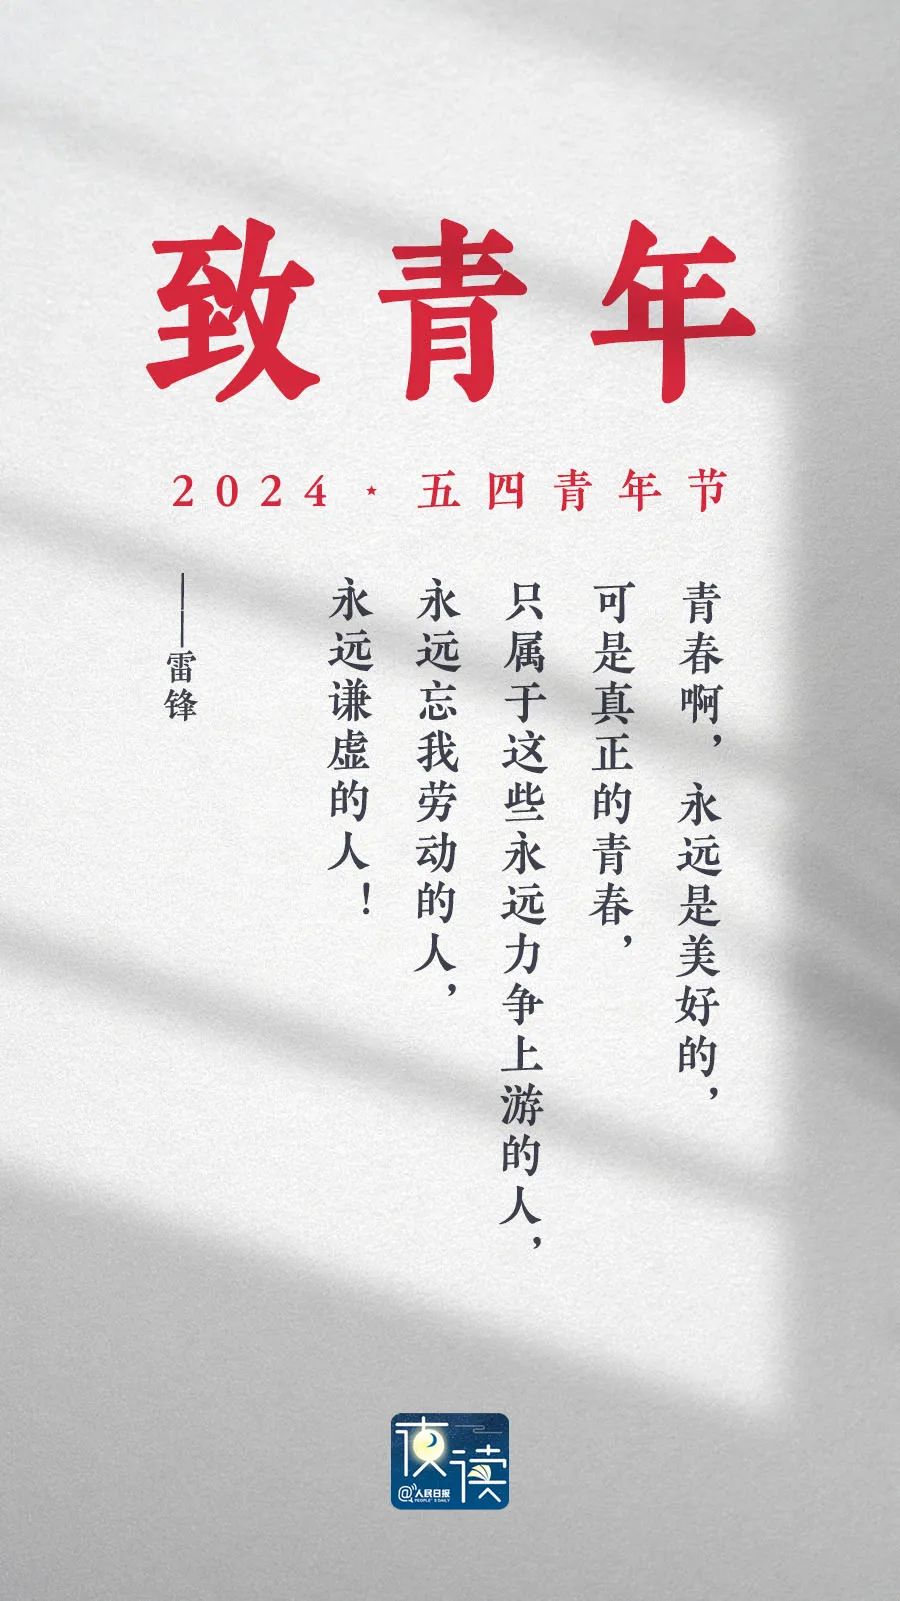 致青年
2024·五四青年节
青春啊，永远是美好的，
可是真正的青春，
只属于这些永远力争上游的人，
永远忘我劳动的人，
永远谦虚的人！
——雷锋
夜读
@人民日报
PEOPLE'S DAILY